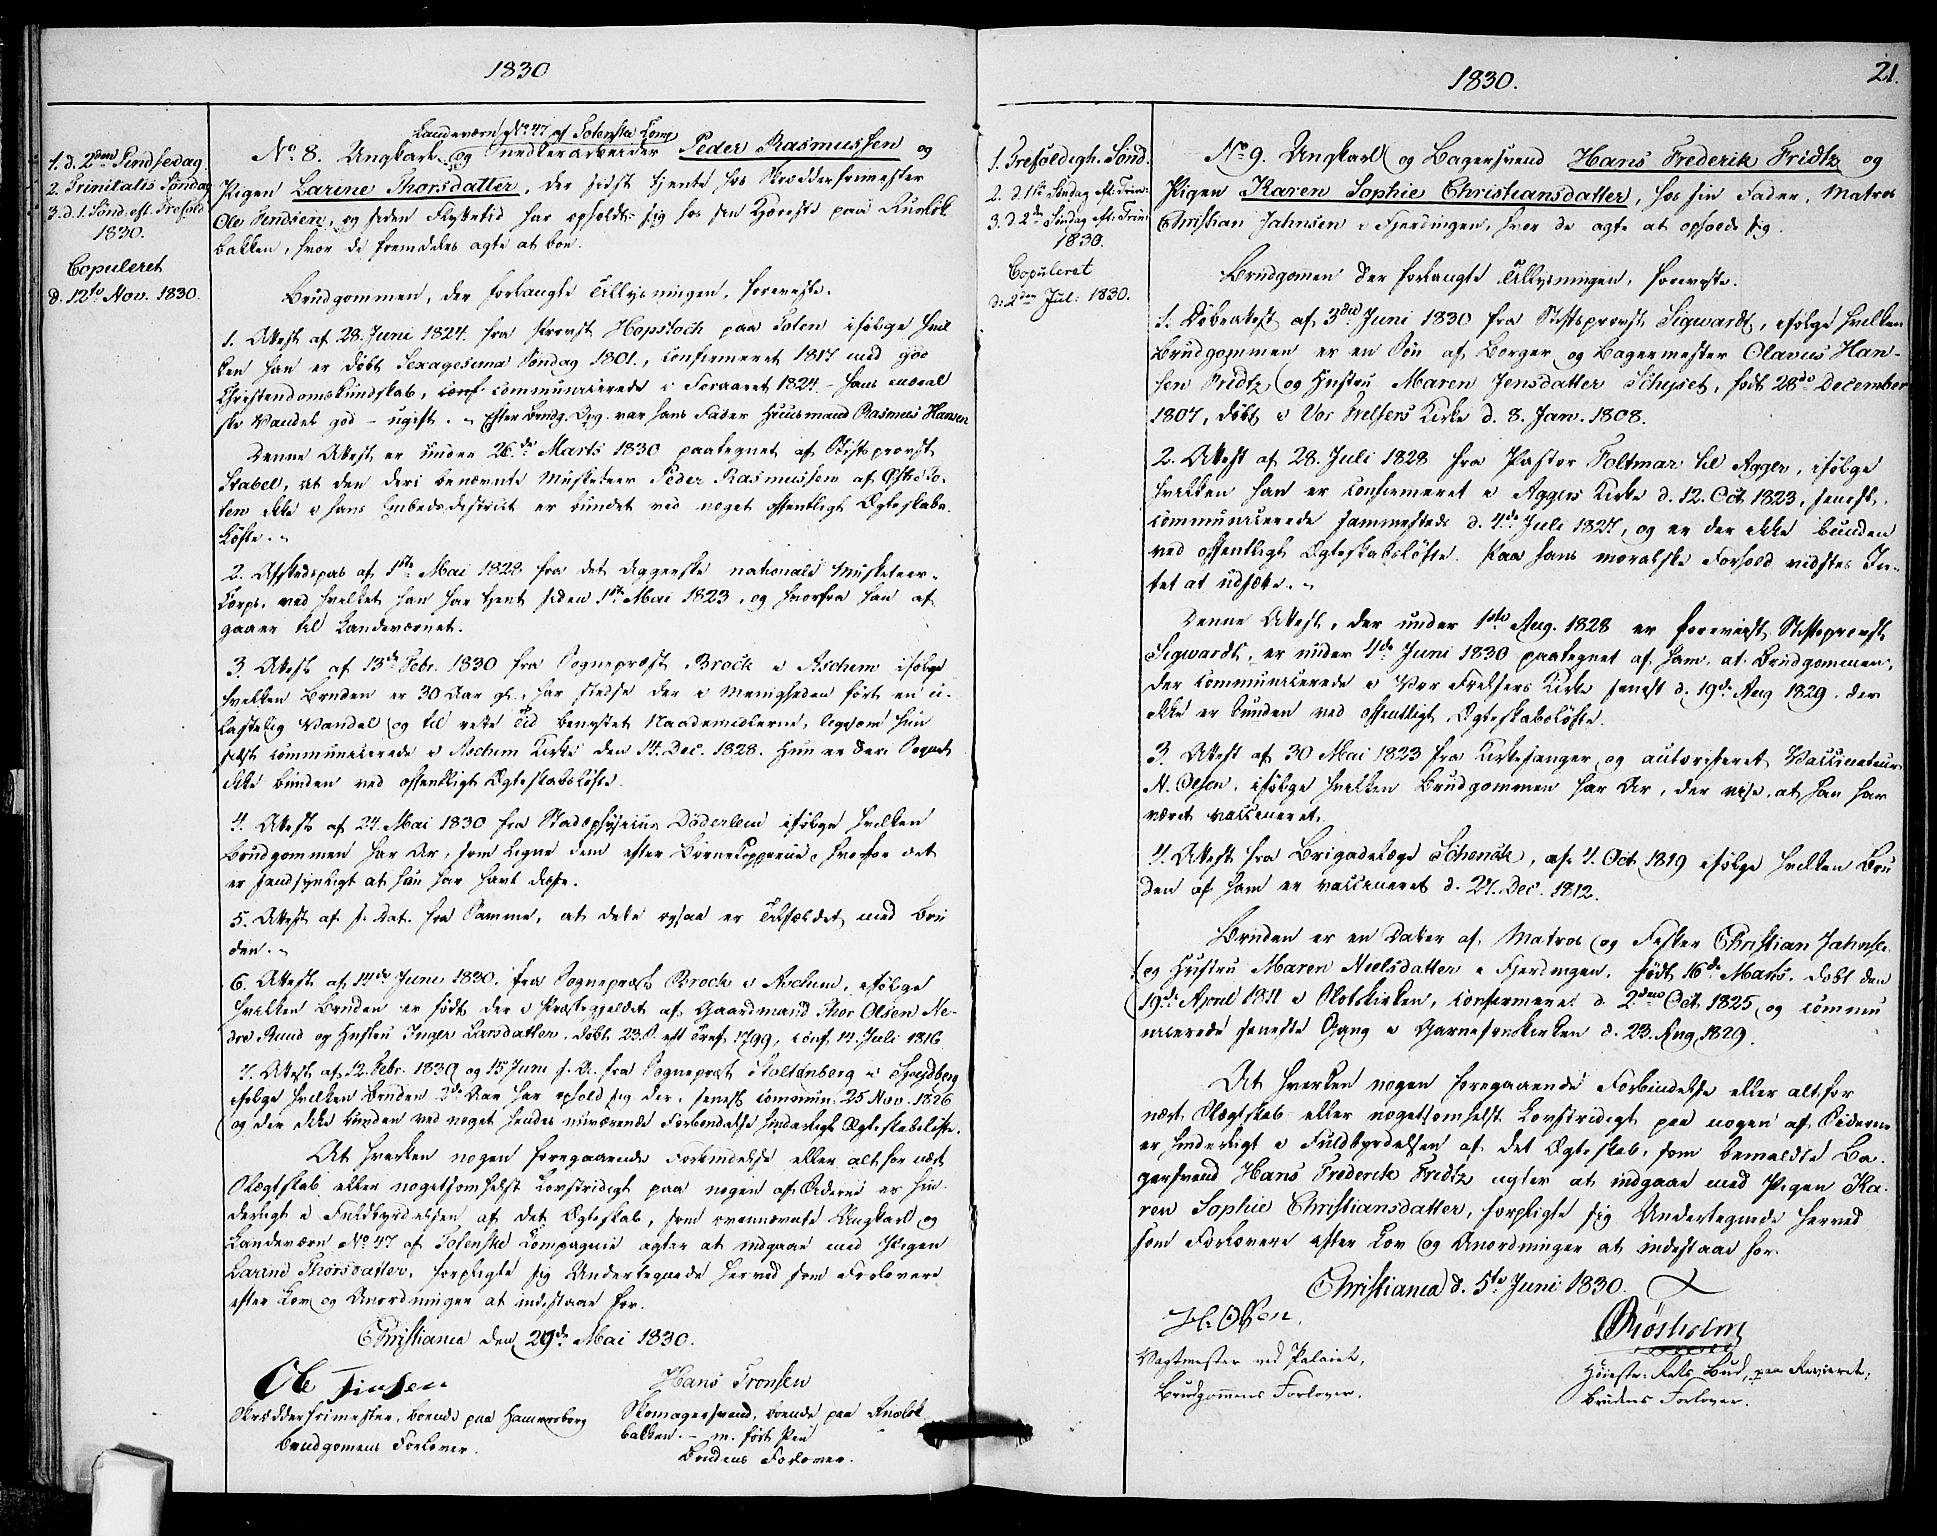 1830
1. d. 2den Pindsedag
2. Trinitatis Søndag
3. d. 1. Sønd. eft. Trefold.
1830.
Copuleret
d. 12te Nov. 1830.
Landeværn No 47 af Totenske Comp.
No. 8. Ungkarl og Snedkerarbeider Peder Rasmussen og
Pigen Larine Thorsdatter, der sidst tjente hos Skrædderfrimester
Ole Jensen, og siden Flyttetid har opholdt sig hos sin Kjæreste paa Ruseløk-
bakken, hvor de fremdeles agte at boe.
Brudgommen, der forlangte Tillysningen, foreviste.
1. Attest af 28. Juni 1824 fra Provst Hopstock paa Toten ifølge hvil
ken han er døbt Sexagesima Søndag 1801, confirmeret 1817 med god
Christendomskundskab, communicerede i Foraaret 1824 - hans moral
ske Vandel god - ugift. Efter Brudg. Opg. var hans Fader Huusmand Rasmus Hansen
Denne Attest er under 26de Marts 1830 paategnet af Stiftsprovst
Stabel, at den deri benævnte Musketeer Peder Rasmussen af Østre To-
ten ikke i hans Embedsdistrict er bundet ved noget offentligt Ægteskabs
Løfte.
2. Afskedspas af 1ste Mai 1828 fra det Aggerske nationale Musketeer-
Corps, ved hvilket han har tjent siden 1ste Mai 1823, og hvorfra han af
gaaer til Landeværnet.
3. Attest af 13de Febr. 1830 fra Sognepræst Brock i Aschim ifølge
hvilken Bruden er 30 Aar gl., har stedse der i Menigheden ført en u-
lastelig Vandel og til rette Tid benyttet Naademidlerne, ligesom hun
sidst communicerede i Aschim Kirke den 14. Dec. 1828. Hun er deri Sognet
ikke bunden ved offentligt Ægteskabsløfte.
4. Attest af 24. Mai 1830 fra Stadsphysicus Døderlein ifølge hvilken
Brudgommen har Ar, som ligne dem efter Børnekopperne, hvorfor det
er sandsynligt at han har havt disse.
5. Attest af s. Dat. fra Samme, at dette ogsaa er Tilfældet med Bru
den.
6. Attest af 14de Juni 1830 fra Sognepræst Brock i Aschim, ifølge
hvilken Bruden er født der i Præstegjeldet af Gaardmand Thor Olsen Ne-
dre Ruud og Hustru Inger Larsdatter, døbt 23. S. eft. Tref. 1799, conf. 14. Juli 1816
7. Attest af 12. Febr. 1830 og 15 Juni s. A. fra Sognepræst Stoltenberg i Spydberg
ifølge hvilken Bruden 2de Aar har opholdt sig der, senest commun. 25 Nov. 1826
og der ikke bunden ved noget hendes nuværende Forbindelse hinderligt Ægteskabsløfte.
At hverken nogen foregaaende Forbindelse eller alt for nært
Slægtskab eller nogetsomhelst Lovstridigt paa nogen af Siderne er hin-
derligt i Fuldbyrdelsen af det Ægteskab, som ovennævnte Ungkarl og
Landeværn No 47 af Totenske Compagnie agter at indgaae med Pigen
Larine Thorsdatter, forpligte sig Undertegnede herved som Forlovere
efter Lov og Anordninger at indestaae for.
Christiania den 29de Mai 1830.
Ole Jensen
Skrædderfrimester, boende paa Hammersborg
Brudgomens Forlover.
Hans Tronsen
Skomagersvend, boende paa Ruseløk
bakken. - m. ført Pen
Brudens Forlover.
1830.
21.
1. Trefoldigh. Sønd.
2. d. 1ste Søndag eft. Trin:
3. d. 2den Søndag eft. Trin:
1830.
Copuleret
d. 2den Jul: 1830.
No. 9. Ungkarl og Bagersvend Hans Frederik Fridtz og
Pigen Karen Sophie Christiansdatter, hos sin Fader, Matros
Christian Jahnsen i Fjerdingen, hvor de agte at opholde sig.
Brudgomen der forlangte Tillysningen, foreviste.
1. Døbeattest af 3die Juni 1830 fra Stiftsprovst Sigwardt, ifølge hvilken
Brudgommen er en Søn af Borger og Bagermester Olavus Han-
sen Fridtz og Hustru Maren Jensdatter Schyset, født 28de December
1807, døbt i Vor Frelsers Kirke d. 8. Jan. 1808.
2. Attest af 28. Juli 1828 fra Pastor Foltmar til Agger, ifølge
hvilken han er confirmeret i Aggers Kirke d. 12. Oct 1823, senest
communicerede sammesteds d. 4de Juli 1827, og er der ikke bunden
ved offentligt Ægteskabsløfte. Paa hans moralske Forhold vidstes In-
tet at udsætte.
Denne Attest, der under 1ste Aug. 1828 er foreviist Stiftsprovst
Sigwardt, er under 4de Juni 1830 paategnet af ham, at Brudgommen,
der communicerede i Vor Frelsers Kirke senest d. 19de Aug 1829, der
ikke er bunden ved offentligt Ægteskabsløfte.
3. Attest af 30 Mai 1823 fra Kirkesanger og autoriseret Vaccinateur
N. Olsen, ifølge hvilken Brudgommen har Ar, der vise, at han har
været vaccineret.
4. Attest fra Brigadelæge Schenck, af 4. Oct 1819 ifølge hvilken Bru
den af ham er vaccineret d. 27. Dec. 1812.
Bruden er en Datter af Matros og Fisker Christian Jahnsen
og Hustru Maren Nielsdatter i Fjerdingen, født 16de Marts, døbt den
19de April 1811 i Slotskirken, confirmeret d. 2den Oct. 1825 og commu
nicerede seneste Gang i Garnisonskirken d. 23. Aug 1829.
At hverken nogen foregaaende Forbindelse eller alt for
nært Slægtskab eller nogetsomhelst Lovstridigt paa nogen af Siderne
er hinderligt i Fuldbyrdelsen af det Ægteskab, som bemældte Ba-
gersvend Hans Frederik Fridtz agter at indgaae med Pigen Ka-
ren Sophie Christiansdatter, forpligte sig Undertegnede herved
som Forlovere efter Lov og Anordninger at indestaae for.
Christiania d. 5te Juni 1830.
H. Olsen,
Vagtmester ved Palaiet,
Brudgommens Forlover.
Røsholm
Høieste-Rets Bud, paa Reviered,
Brudens Forlover.